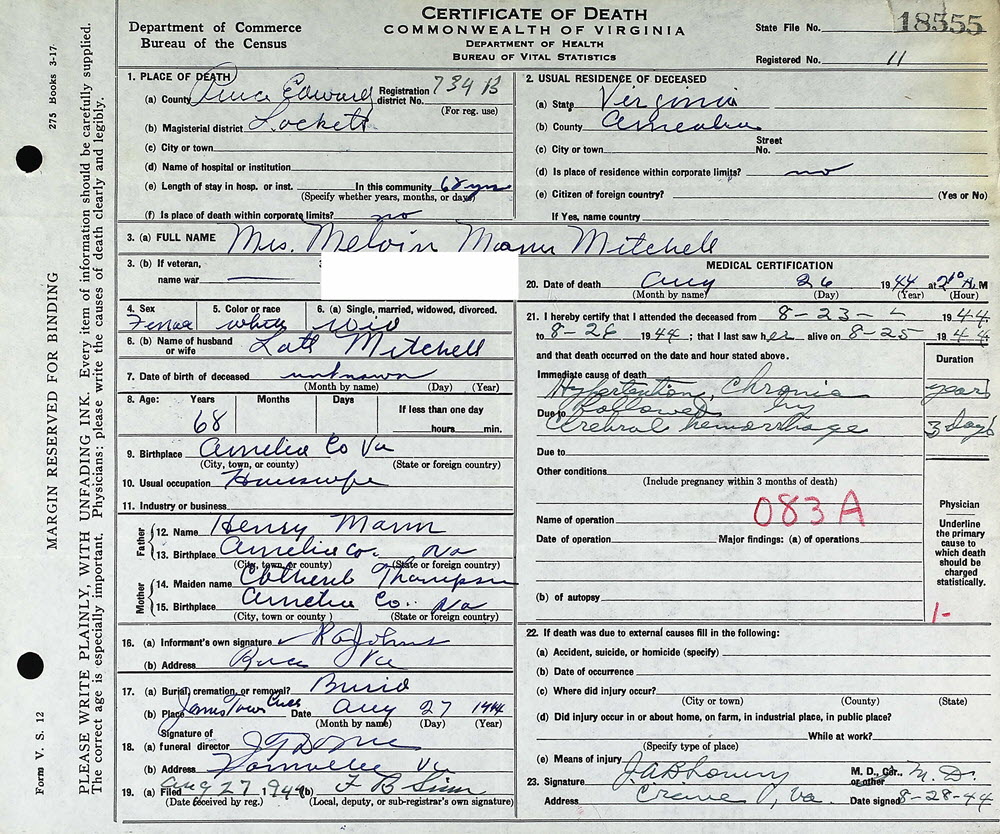 CERTIFICATE OF DEATH
COMMONWEALTH OF VIRGINIA
DEPARTMENT OF HEALTH
BUREAU OF VITAL STATISTICS
Department of Commerce
Bureau of the Census
State File No. 18555
Registered No. 11
275 Books 3-17
MARGIN RESERVED FOR BINDING
PLEASE WRITE PLAINLY, WITH UNFADING INK. Every item of information should be carefully supplied.
The correct age is especially important. Physicians: please write the causes of death clearly and legibly.
Form V. S. 12
1. PLACE OF DEATH
(a) County Prince Edward Registration district No. 734 B
(For reg. use)
(b) Magisterial district Lockett
(c) City or town
(d) Name of hospital or institution
(e) Length of stay in hosp. or inst. In this community 68 yrs
(Specify whether years, months, or days)
(f) Is place of death within corporate limits? no
2. USUAL RESIDENCE OF DECEASED
(a) State Virginia
(b) County Amelia
(c) City or town Street No.
(d) Is place of residence within corporate limits? no
(e) Citizen of foreign country? (Yes or No)
If Yes, name country
3. (a) FULL NAME Mrs. Melvin Mann Mitchell
3. (b) If veteran,
name war
4. Sex Female
5. Color or race white
6. (a) Single, married, widowed, divorced. Wid
6. (b) Name of husband or wife Late Mitchell
7. Date of birth of deceased unknown
(Month by name) (Day) (Year)
8. Age: Years Months Days If less than one day
68 hours min.
9. Birthplace Amelia Co Va
(City, town, or county) (State or foreign country)
10. Usual occupation Housewife
11. Industry or business
Father
12. Name Henry Mann
13. Birthplace Amelia Co. Va
(City, town, or county) (State or foreign country)
Mother
14. Maiden name Thompson
15. Birthplace Amelia Co. Va
(City, town or county) (State or foreign country)
16. (a) Informant's own signature
(b) Address Va
17. (a) Burial, cremation, or removal? Burial
(b) Place Jamestown Date Aug 27 1944
(Month by name) (Day) (Year)
18. (a) Signature of funeral director
(b) Address Va
19. (a) Filed Aug 27 1944 (b) F B
(Date received by reg.) (Local, deputy, or sub-registrar's own signature)
MEDICAL CERTIFICATION
20. Date of death Aug 26 1944 at A.M
(Month by name) (Day) (Year) (Hour)
21. I hereby certify that I attended the deceased from 8-23- 1944
to 8-26 1944; that I last saw her alive on 8-25 1944
and that death occurred on the date and hour stated above.
Duration
Immediate cause of death
Hypertention, Chronic years
Due to followed by
Cerebral hemorrhage 3 days
Due to
Other conditions
(Include pregnancy within 3 months of death)
083A
Name of operation
Date of operation Major findings: (a) of operations
(b) of autopsy
Physician
Underline the primary cause to which death should be charged statistically.
1-
22. If death was due to external causes fill in the following:
(a) Accident, suicide, or homicide (specify)
(b) Date of occurrence
(c) Where did injury occur?
(City or town) (County) (State)
(d) Did injury occur in or about home, on farm, in industrial place, in public place?
While at work?
(Specify type of place)
(e) Means of injury
23. Signature J A B Lowry M. D., Cor., or other M. D.
Address Crewe, Va. Date signed 8-28-44